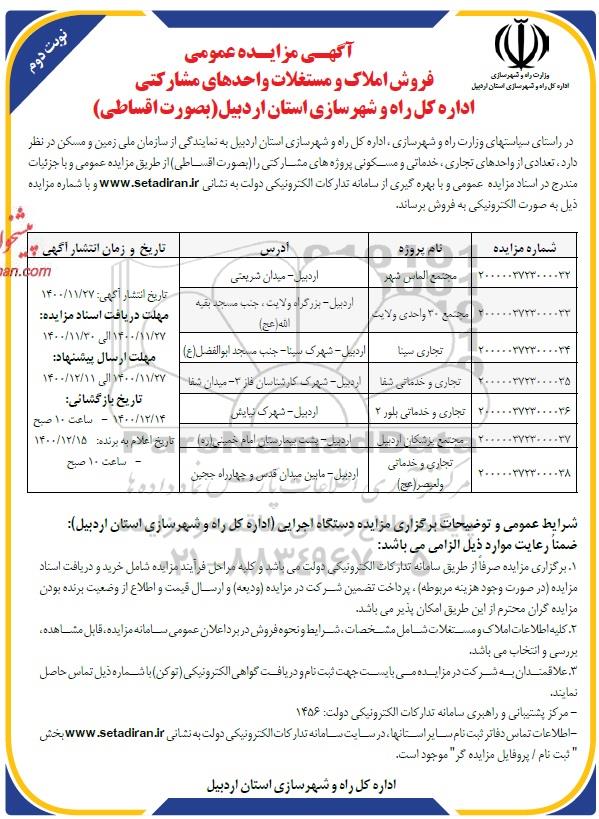 نوبت دوم
وزارت راه و شهرسازی
اداره کل راه و شهرسازی استان اردبیل
آگهـی مزایـده عمومی
فروش املاک و مستغلات واحدهای مشارکتی
اداره کل راه و شهرسازی استان اردبیل(بصورت اقساطی)
در راستای سیاستهای وزارت راه و شهرسازی ، اداره کل راه و شهرسازی استان اردبیل به نمایندگی از سازمان ملی زمین و مسکن در نظر
دارد ، تعدادی از واحدهای تجاری ، خدماتی و مسکونی پروژه های مشارکتی را (بصورت اقساطی) از طریق مزایده عمومی و با جزئیات
مندرج در اسناد مزایده عمومی و با بهره گیری از سامانه تدارکات الکترونیکی دولت به نشانی www.setadiran.ir و با شماره مزایده
ذیل به صورت الکترونیکی به فروش برساند.
شماره مزایده نام پروژه آدرس تاریخ و زمان انتشار آگهی
۲۰۰۰۰۰۳۷۲۳۰۰۰۰۳۲ مجتمع الماس شهر اردبیل- میدان شریعتی
۲۰۰۰۰۰۳۷۲۳۰۰۰۰۳۳ مجتمع ۳۰ واحدی ولایت اردبیل- بزرگراه ولایت ، جنب مسجد بقیه
الله(عج)
۲۰۰۰۰۰۳۷۲۳۰۰۰۰۳۴ تجاری سینا اردبیل- شهرک سینا- جنب مسجد ابوالفضل(ع)
۲۰۰۰۰۰۳۷۲۳۰۰۰۰۳۵ تجاری و خدماتی شفا اردبیل- شهرک کارشناسان فاز ۳- میدان شفا
۲۰۰۰۰۰۳۷۲۳۰۰۰۰۳۶ تجاری و خدماتی بلور ۲ اردبیل- شهرک نیایش
۲۰۰۰۰۰۳۷۲۳۰۰۰۰۳۷ مجتمع پزشکان اردبیل اردبیل- پشت بیمارستان امام خمینی(ره)
۲۰۰۰۰۰۳۷۲۳۰۰۰۰۳۸ تجاری و خدماتی
ولیعصر(عج) اردبیل- مابین میدان قدس و چهارراه ججین
تاریخ انتشار آگهی: ۱۴۰۰/۱۱/۲۷
مهلت دریافت اسناد مزایده:
۱۴۰۰/۱۱/۲۷ الی ۱۴۰۰/۱۱/۳۰
مهلت ارسال پیشنهاد:
۱۴۰۰/۱۱/۲۷ الی ۱۴۰۰/۱۲/۱۱
تاریخ بازگشائی:
۱۴۰۰/۱۲/۱۴ - ساعت ۱۰ صبح
تاریخ اعلام به برنده: ۱۴۰۰/۱۲/۱۵
- ساعت ۱۰ صبح
ParsNamadData
شرایط عمومی و توضیحات برگزاری مزایده دستگاه اجرایی (اداره کل راه و شهرسازی استان اردبیل):
ضمناً رعایت موارد ذیل الزامی می باشد:
۱. برگزاری مزایده صرفاً از طریق سامانه تدارکات الکترونیکی دولت می باشد و کلیه مراحل فرآیند مزایده شامل خرید و دریافت اسناد
مزایده (در صورت وجود هزینه مربوطه) ، پرداخت تضمین شرکت در مزایده (ودیعه) و ارسال قیمت و اطلاع از وضعیت برنده بودن
مزایده گران محترم از این طریق امکان پذیر می باشد.
۲. کلیه اطلاعات املاک و مستغلات شامل مشخصات ، شرایط و نحوه فروش در برد اعلان عمومی سامانه مزایده، قابل مشاهده ،
بررسی و انتخاب می باشد.
۳. علاقمندان به شرکت در مزایده می بایست جهت ثبت نام و دریافت گواهی الکترونیکی (توکن) با شماره ذیل تماس حاصل
نمایند.
- مرکز پشتیبانی و راهبری سامانه تدارکات الکترونیکی دولت: ۱۴۵۶
-اطلاعات تماس دفاتر ثبت نام سایر استانها، در سایت سامانه تدارکات الکترونیکی دولت به نشانی www.setadiran.ir بخش
" ثبت نام / پروفایل مزایده گر" موجود است.
اداره کل راه و شهرسازی استان اردبیل